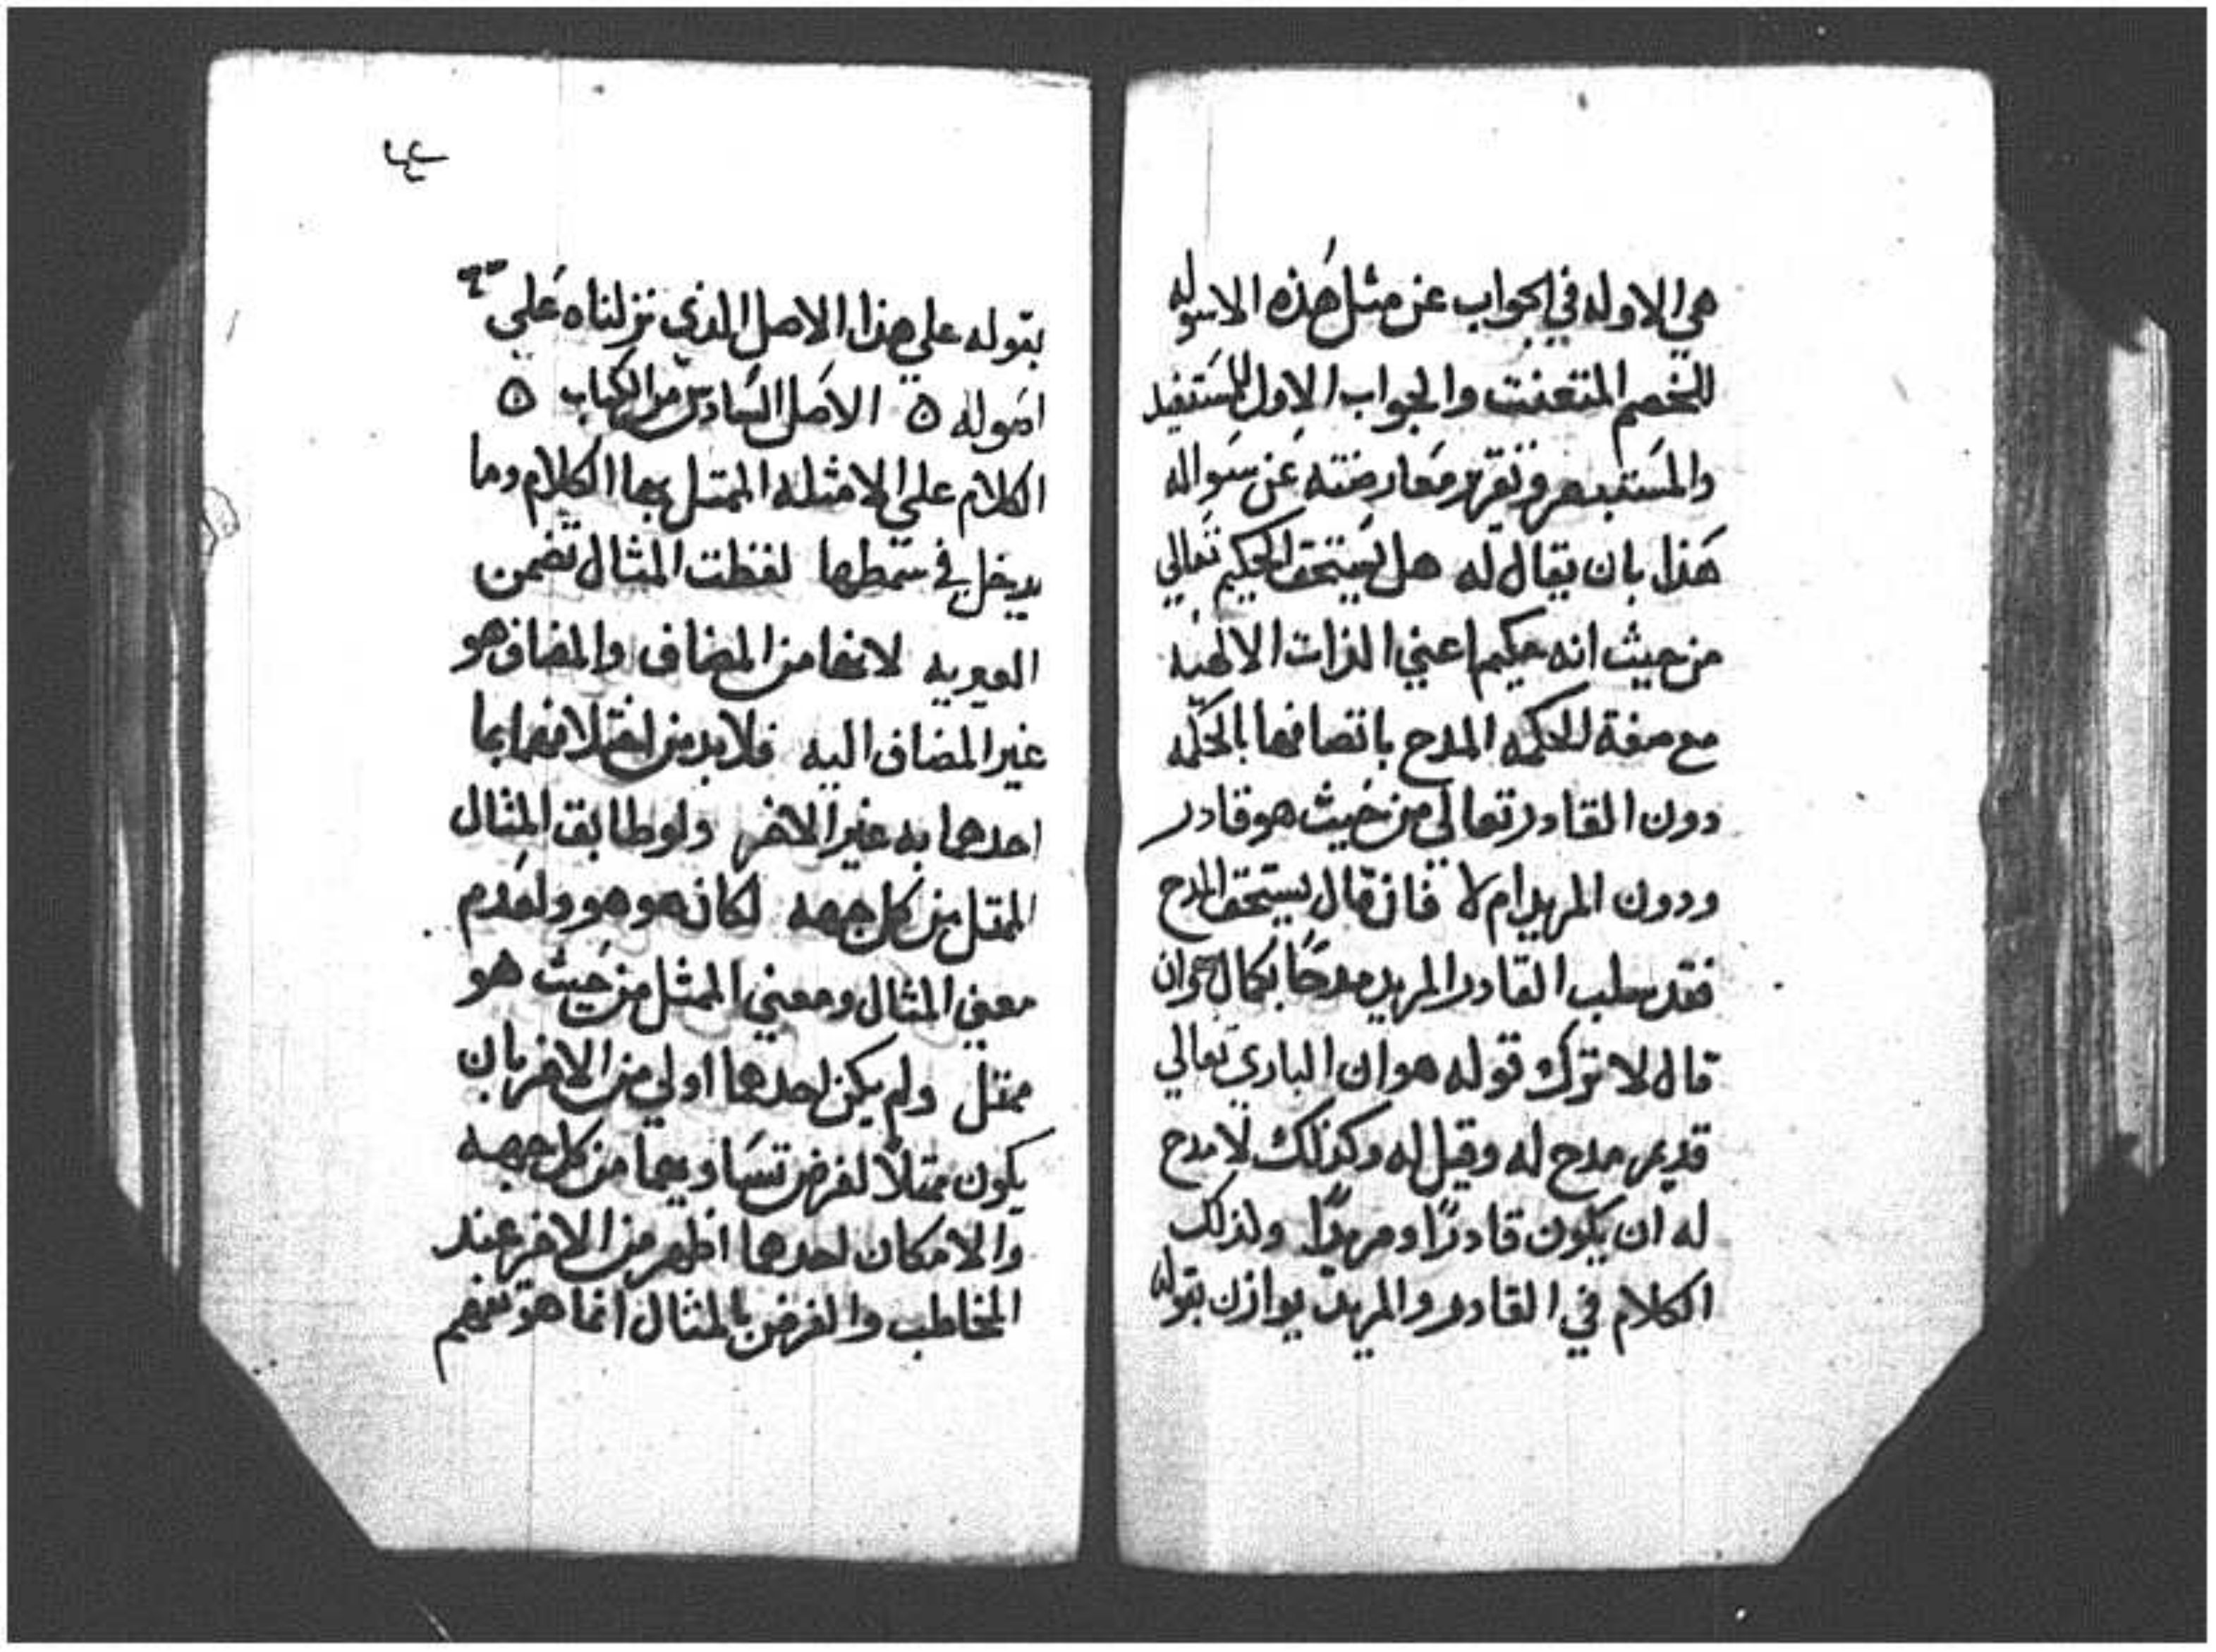 هي الاوله في الجواب عن مثل هذه الاسوله
للخصم المتعنت والجواب الاول للمستفيد
والمستفهم وتقرير معارضته عن سواله
هذا بان يقال له هل يستحق الحكيم تعالي
من حيث انه حكيم اعني الذات الالاهيه
مع صفة الحكمه المدح باتصافها بالحكمه
دون القادر تعالي من حيث هو قادر
ودون المريد ام لا فان قال يستحق المدح
فقد سلب القادر المريد مدحًا بكمال وان
قال لا ترك قوله هو ان الباري تعالي
قديم مدح له وقيل له وكذلك لا مدح
له ان يكون قادرًا ومريدًا ولذلك
الكلام في القادر والمريد يوازن بقوله
بقوله علي هذا الاصل الذي نزلناه علي
اصوله ٥ الاصل السادس من الكتاب ٥
الكلام علي الامثله الممثل بها الكلام وما
يدخل في سمطها لفظت المثال تضمن
الغيريه لانها من المضاف والمضاف هو
غير المضاف اليه فلا بد من اختلافهما بما
احدهما به غير الاخر ولو طابق المثال
الممثل من كل جهه لكان هو هو ولعدم
معني المثال ومعني الممثل من حيث هو
ممثل ولم يكن احدهما اولي من الاخر بان
يكون ممثلًا لفرض تساويهما من كل جهه
والا مكان احدهما اظهر من الاخر عند
المخاطب والغرض بالمثال انما هو تفهيم